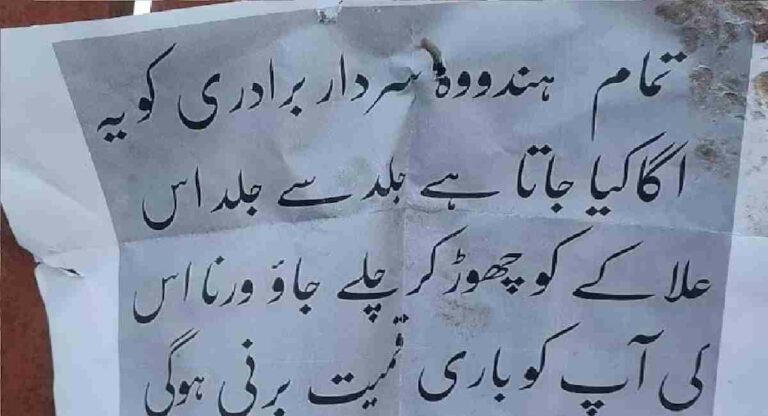 تمام ہندووہ سردار برادری کو یہ
اگاکیا جاتا ہے جلد سے جلد اس
علاکے کو چھوڑ کر چلے جاؤ ورنا اس
کی آپ کو باری قمیت برنی ہوگی